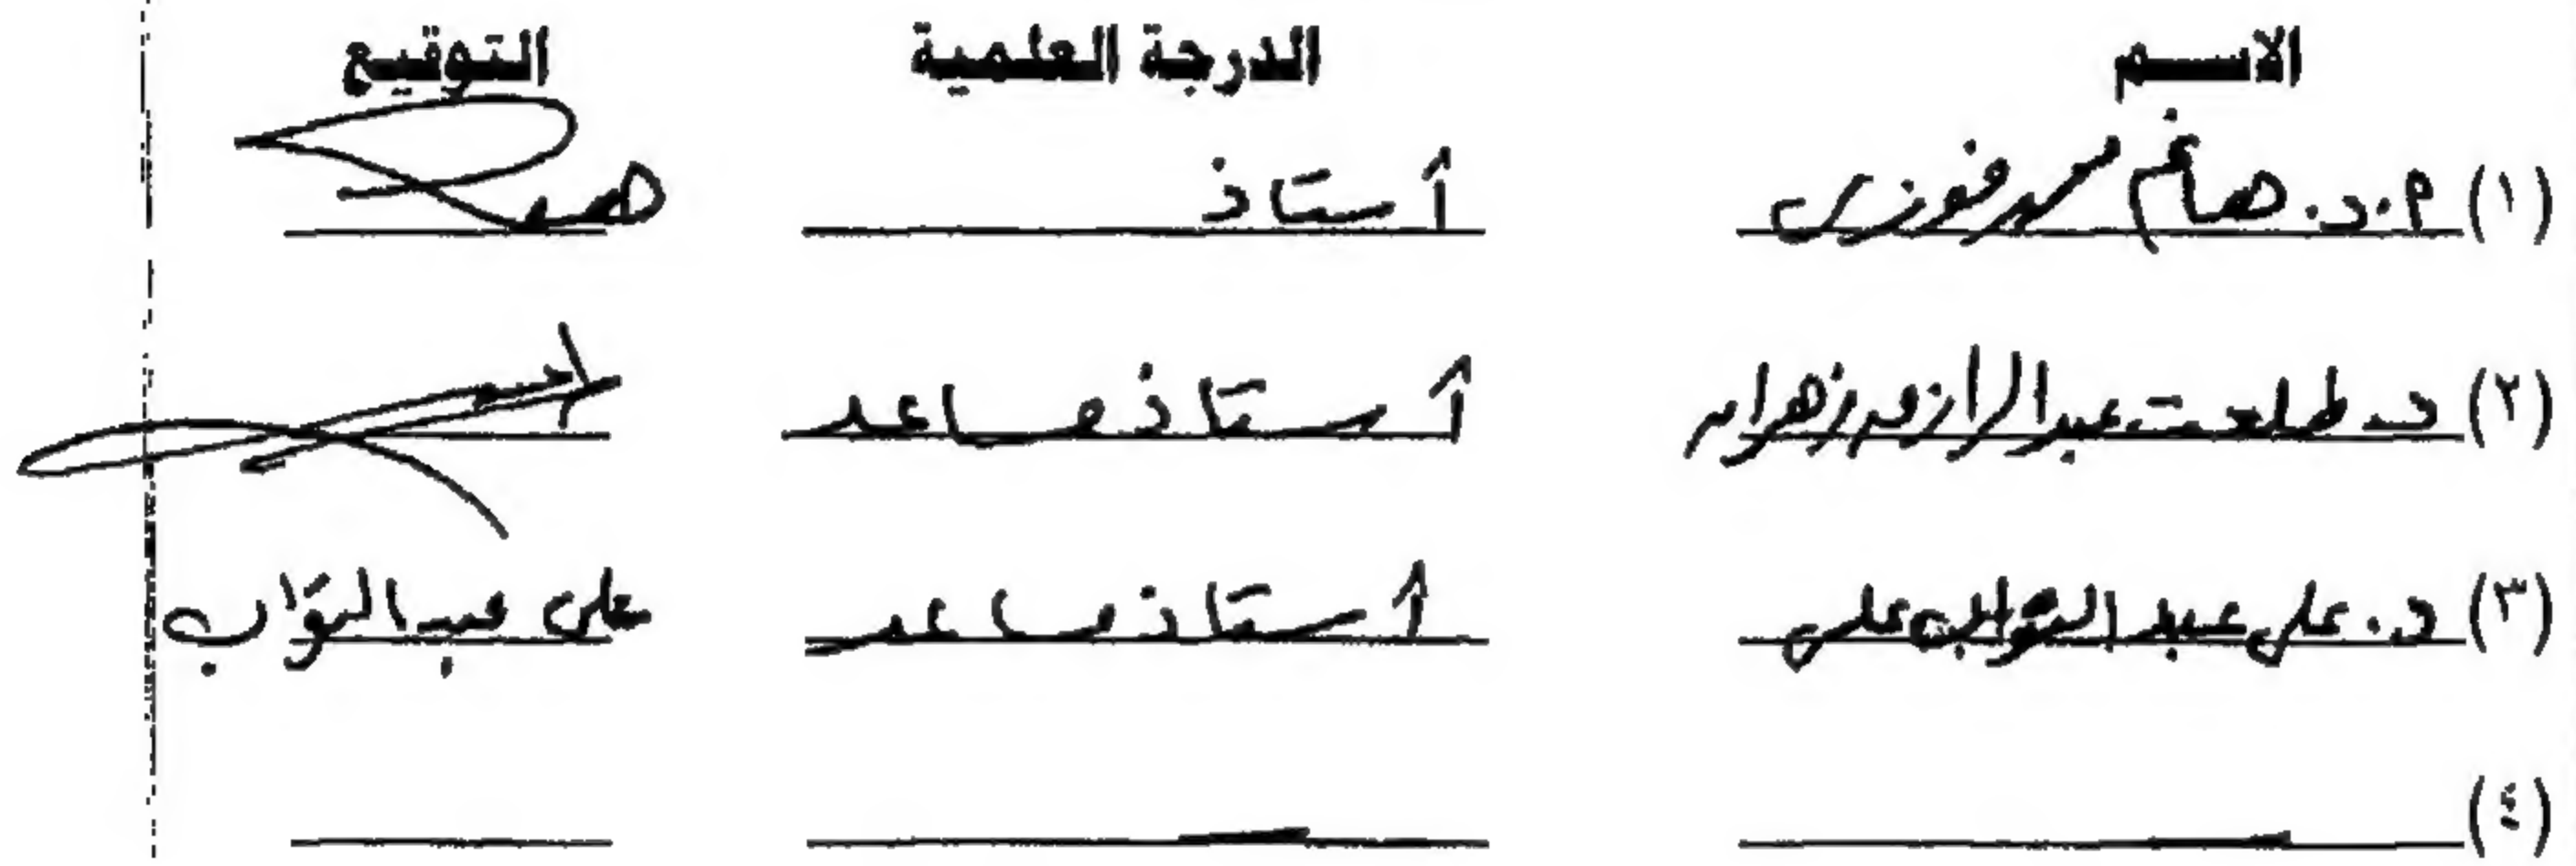 الاسم الدرجة العلمية التوقيع
(١) م.د. هانم محمد فوزى أستاذ
(٢) د. طلعت عبد الرازق زهران أستاذ مساعد
(٣) د. على عبد التواب على أستاذ مساعد على عبد التوّاب
(٤)